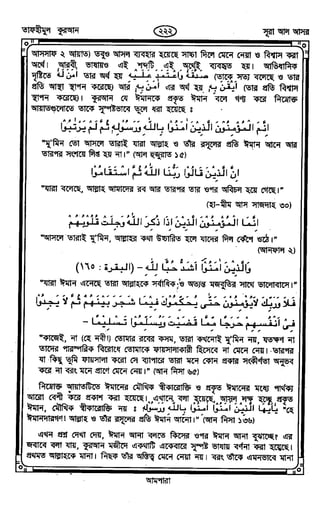 তাফহীমুল কুরআন ২২২ সূরা আল আসর
আসসাফ ২ আয়াত) তবুও আসল ব্যবহার হয়েছে সাচ্চা দিলে মেনে নেয়া ও বিশ্বাস করা
অর্থে। আরবী ভাষায়ও এই শব্দটি এই অর্থেই ব্যবহৃত হয়। আভিধানিক
দৃষ্টিতে اٰمَنَ لَهٗ তার অর্থ হয় صَدَّقَهٗ وَاعْتَمَدَ عَلَيْهِ (তাকে সত্য বলেছে ও তার
প্রতি আস্থা স্থাপন করেছে) আর اٰمَنَ بِهٖ এর অর্থ হয় اَيْقَنَ بِهٖ (তার প্রতি বিশ্বাস
স্থাপন করেছে)। কুরআন যে ঈমানকে প্রকৃত ঈমান বলে গণ্য করে নিম্নোক্ত
আয়াতগুলোতে তাকে সুস্পষ্টভাবে তুলে ধরা হয়েছে :
اِنَّمَا الْمُؤْمِنُوْنَ الَّذِيْنَ اٰمَنُوْا بِاللّٰهِ وَرَسُوْلِهٖ ثُمَّ لَمْ يَرْتَابُوْا
"মু'মিন তো আসলে তারাই যারা আল্লাহ ও তাঁর রসূলের প্রতি ঈমান আনে আর
তারপর সংশয়ে লিপ্ত হয় না।" (আল হুজুরাত ১৫)
اِنَّ الَّذِيْنَ قَالُوْا رَبُّنَا اللّٰهُ ثُمَّ اسْتَقَامُوْا
"যারা বলেছে, আল্লাহ আমাদের রব আর তারপর তার ওপর অবিচল হয়ে গেছে।"
(হা-মীম আস সাজদাহ ৩০)
اِنَّمَا الْمُؤْمِنُوْنَ الَّذِيْنَ اِذَا ذُكِرَ اللّٰهُ وَجِلَتْ قُلُوْبُهُمْ
"আসলে তারাই মু'মিন, আল্লাহর কথা উচ্চারিত হলে যাদের দিল কেঁপে ওঠে।"
(আনফাল ২)
وَالَّذِيْنَ اٰمَنُوْا اَشَدُّ حُبًّا لِّلّٰهِ - (البقرة : ١٦٥)
"যারা ঈমান এনেছে তারা আল্লাহকে সর্বাধিক ও অত্যন্ত মজবুতির সাথে ভালোবাসে।"
فَلَا وَرَبِّكَ لَا يُؤْمِنُوْنَ حَتّٰى يُحَكِّمُوْكَ فِيْمَا شَجَرَ بَيْنَهُمْ ثُمَّ لَا يَجِدُوْا
فِىْ اَنْفُسِهِمْ حَرَجًا مِّمَّا قَضَيْتَ وَيُسَلِّمُوْا تَسْلِيْمًا -
"কাজেই, না (হে নবী!) তোমার রবের কসম, তারা কখনোই মু'মিন নয়, যতক্ষণ না
তাদের পারস্পরিক বিরোধে তোমাকে ফায়সালাকারী হিসেবে না মেনে নেয়। তারপর
যা কিছু তুমি ফায়সালা করো সে ব্যাপারে তারা মনে কোন প্রকার সংকীর্ণতা অনুভব
করে না বরং মনে প্রাণে মেনে নেয়।" (আন নিসা ৬৫)
নিম্নোক্ত আয়াতটিতে ঈমানের মৌখিক স্বীকারোক্তি ও প্রকৃত ঈমানের মধ্যে পার্থক্য
আরো বেশী করে প্রকাশ করা হয়েছে। এখানে বলা হয়েছে, আসল লক্ষ হচ্ছে প্রকৃত
ঈমান, মৌখিক স্বীকারোক্তি নয় : يٰٓاَيُّهَا الَّذِيْنَ اٰمَنُوْٓا اٰمِنُوْا بِاللّٰهِ وَرَسُوْلِهٖ "হে
ঈমানদারগণ! আল্লাহ ও তাঁর রসূলের প্রতি ঈমান আনো।" (আন নিসা ১৩৬)
এখন প্রশ্ন দেখা দেয়, ঈমান আনা বলতে কিসের ওপর ঈমান আনা বুঝাচ্ছে? এর
জবাবে বলা যায়, কুরআন মজীদে একথাটি একেবারে সুস্পষ্ট ভাষায় বর্ণনা করা হয়েছে।
প্রথমত আল্লাহকে মানা। নিছক তাঁর অস্তিত্ব মেনে নেয়া নয়। বরং তাঁকে এমনভাবে মানা
আমপারা